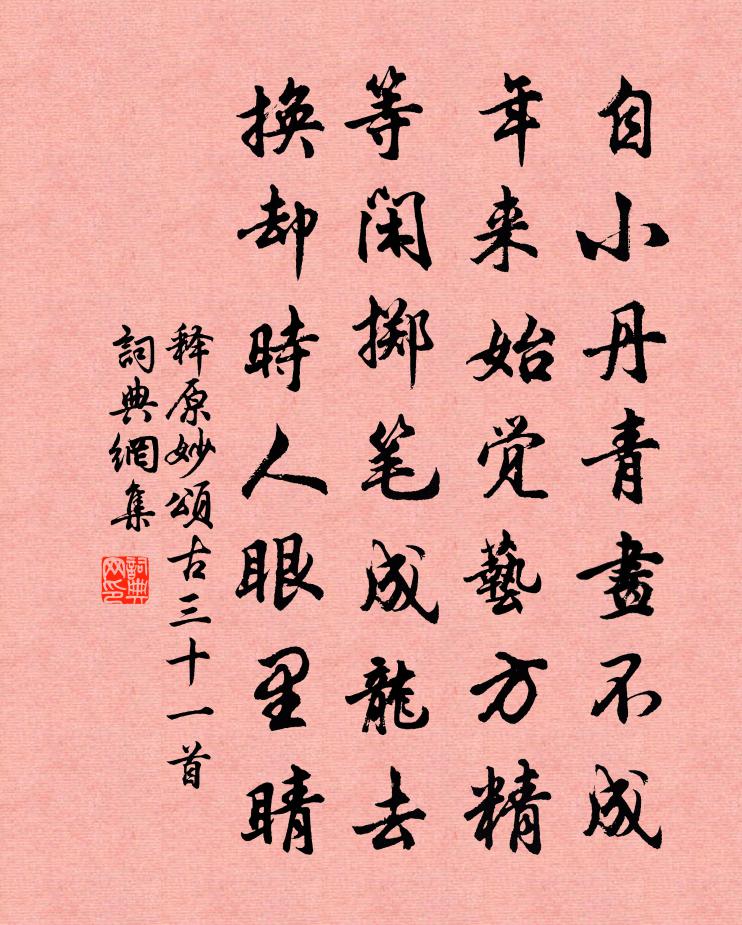 自小丹青畫不成
年来始觉藝方精
等闲掷笔成龍去
換却時人眼里睛
释原妙頌古三十一首
詞典網集
詞典网印